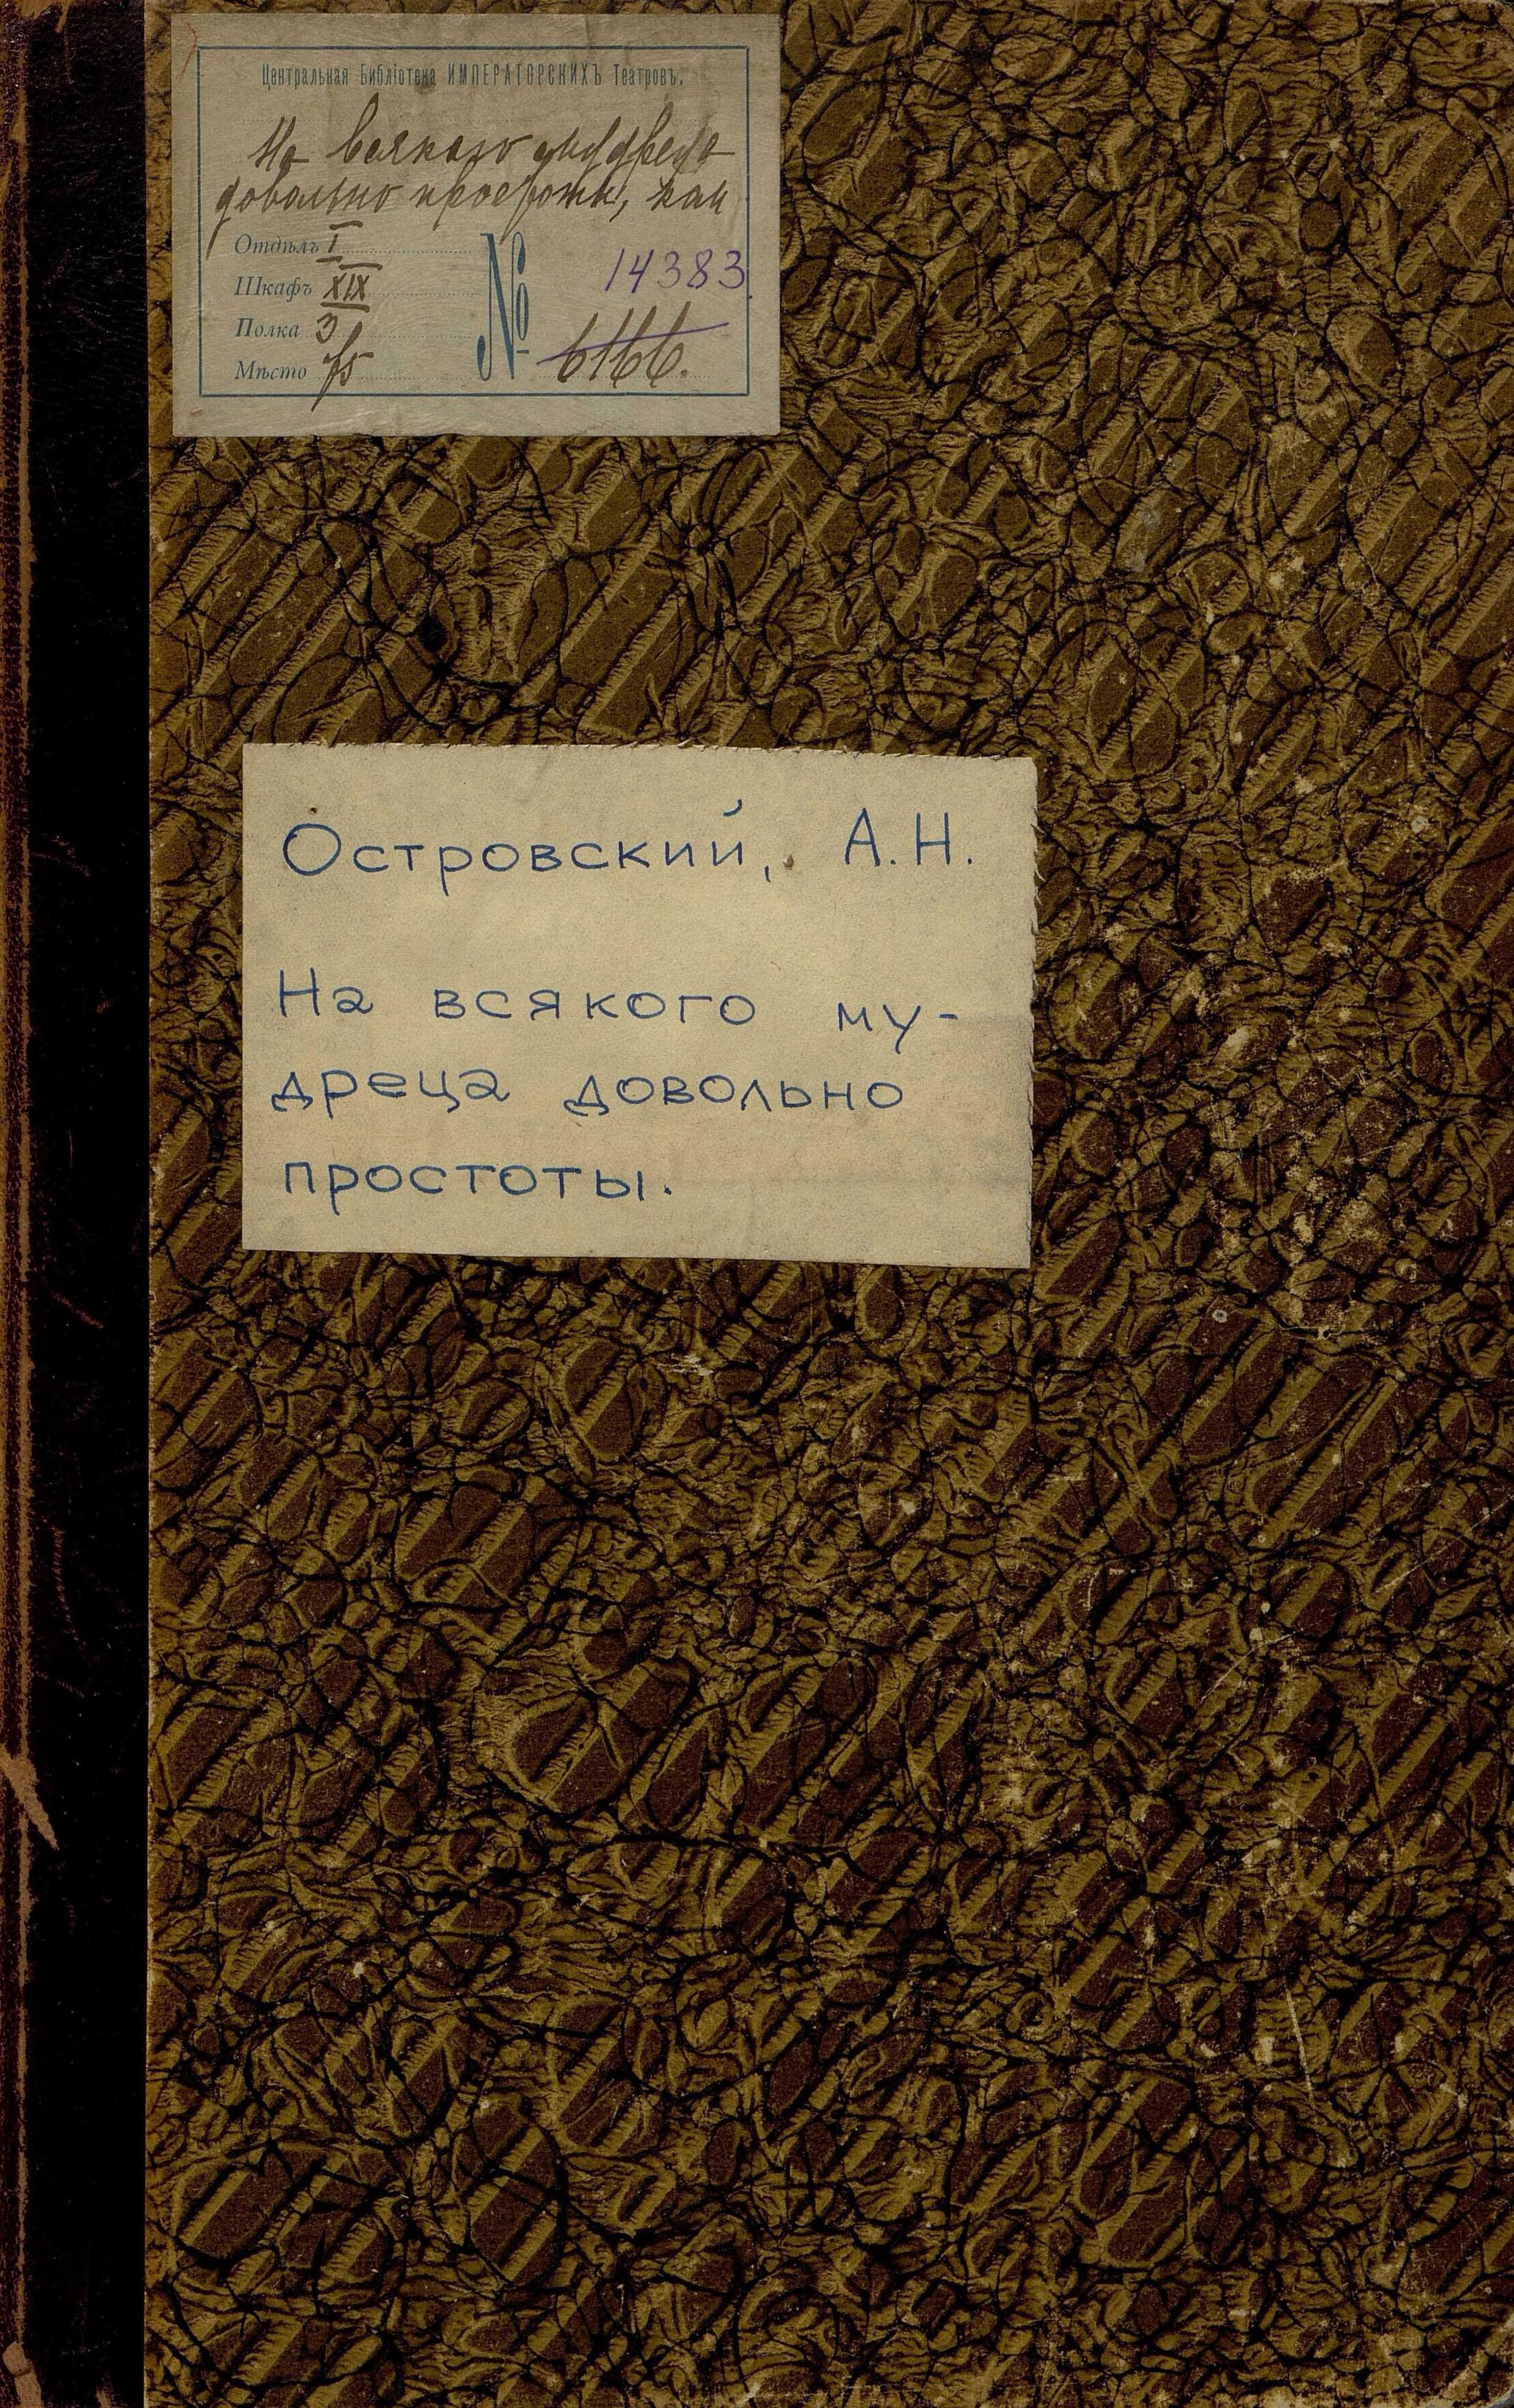 Центральная Библіотека ИМПЕРАТОРСКИХЪ Театровъ.
На всякаго мудреца
довольно простоты, ком
Отдѣлъ I
Шкафъ XIX
Полка 3
Мѣсто
№
14383
6166.
Островский, А.Н.
На всякого му-
дреца довольно
простоты.